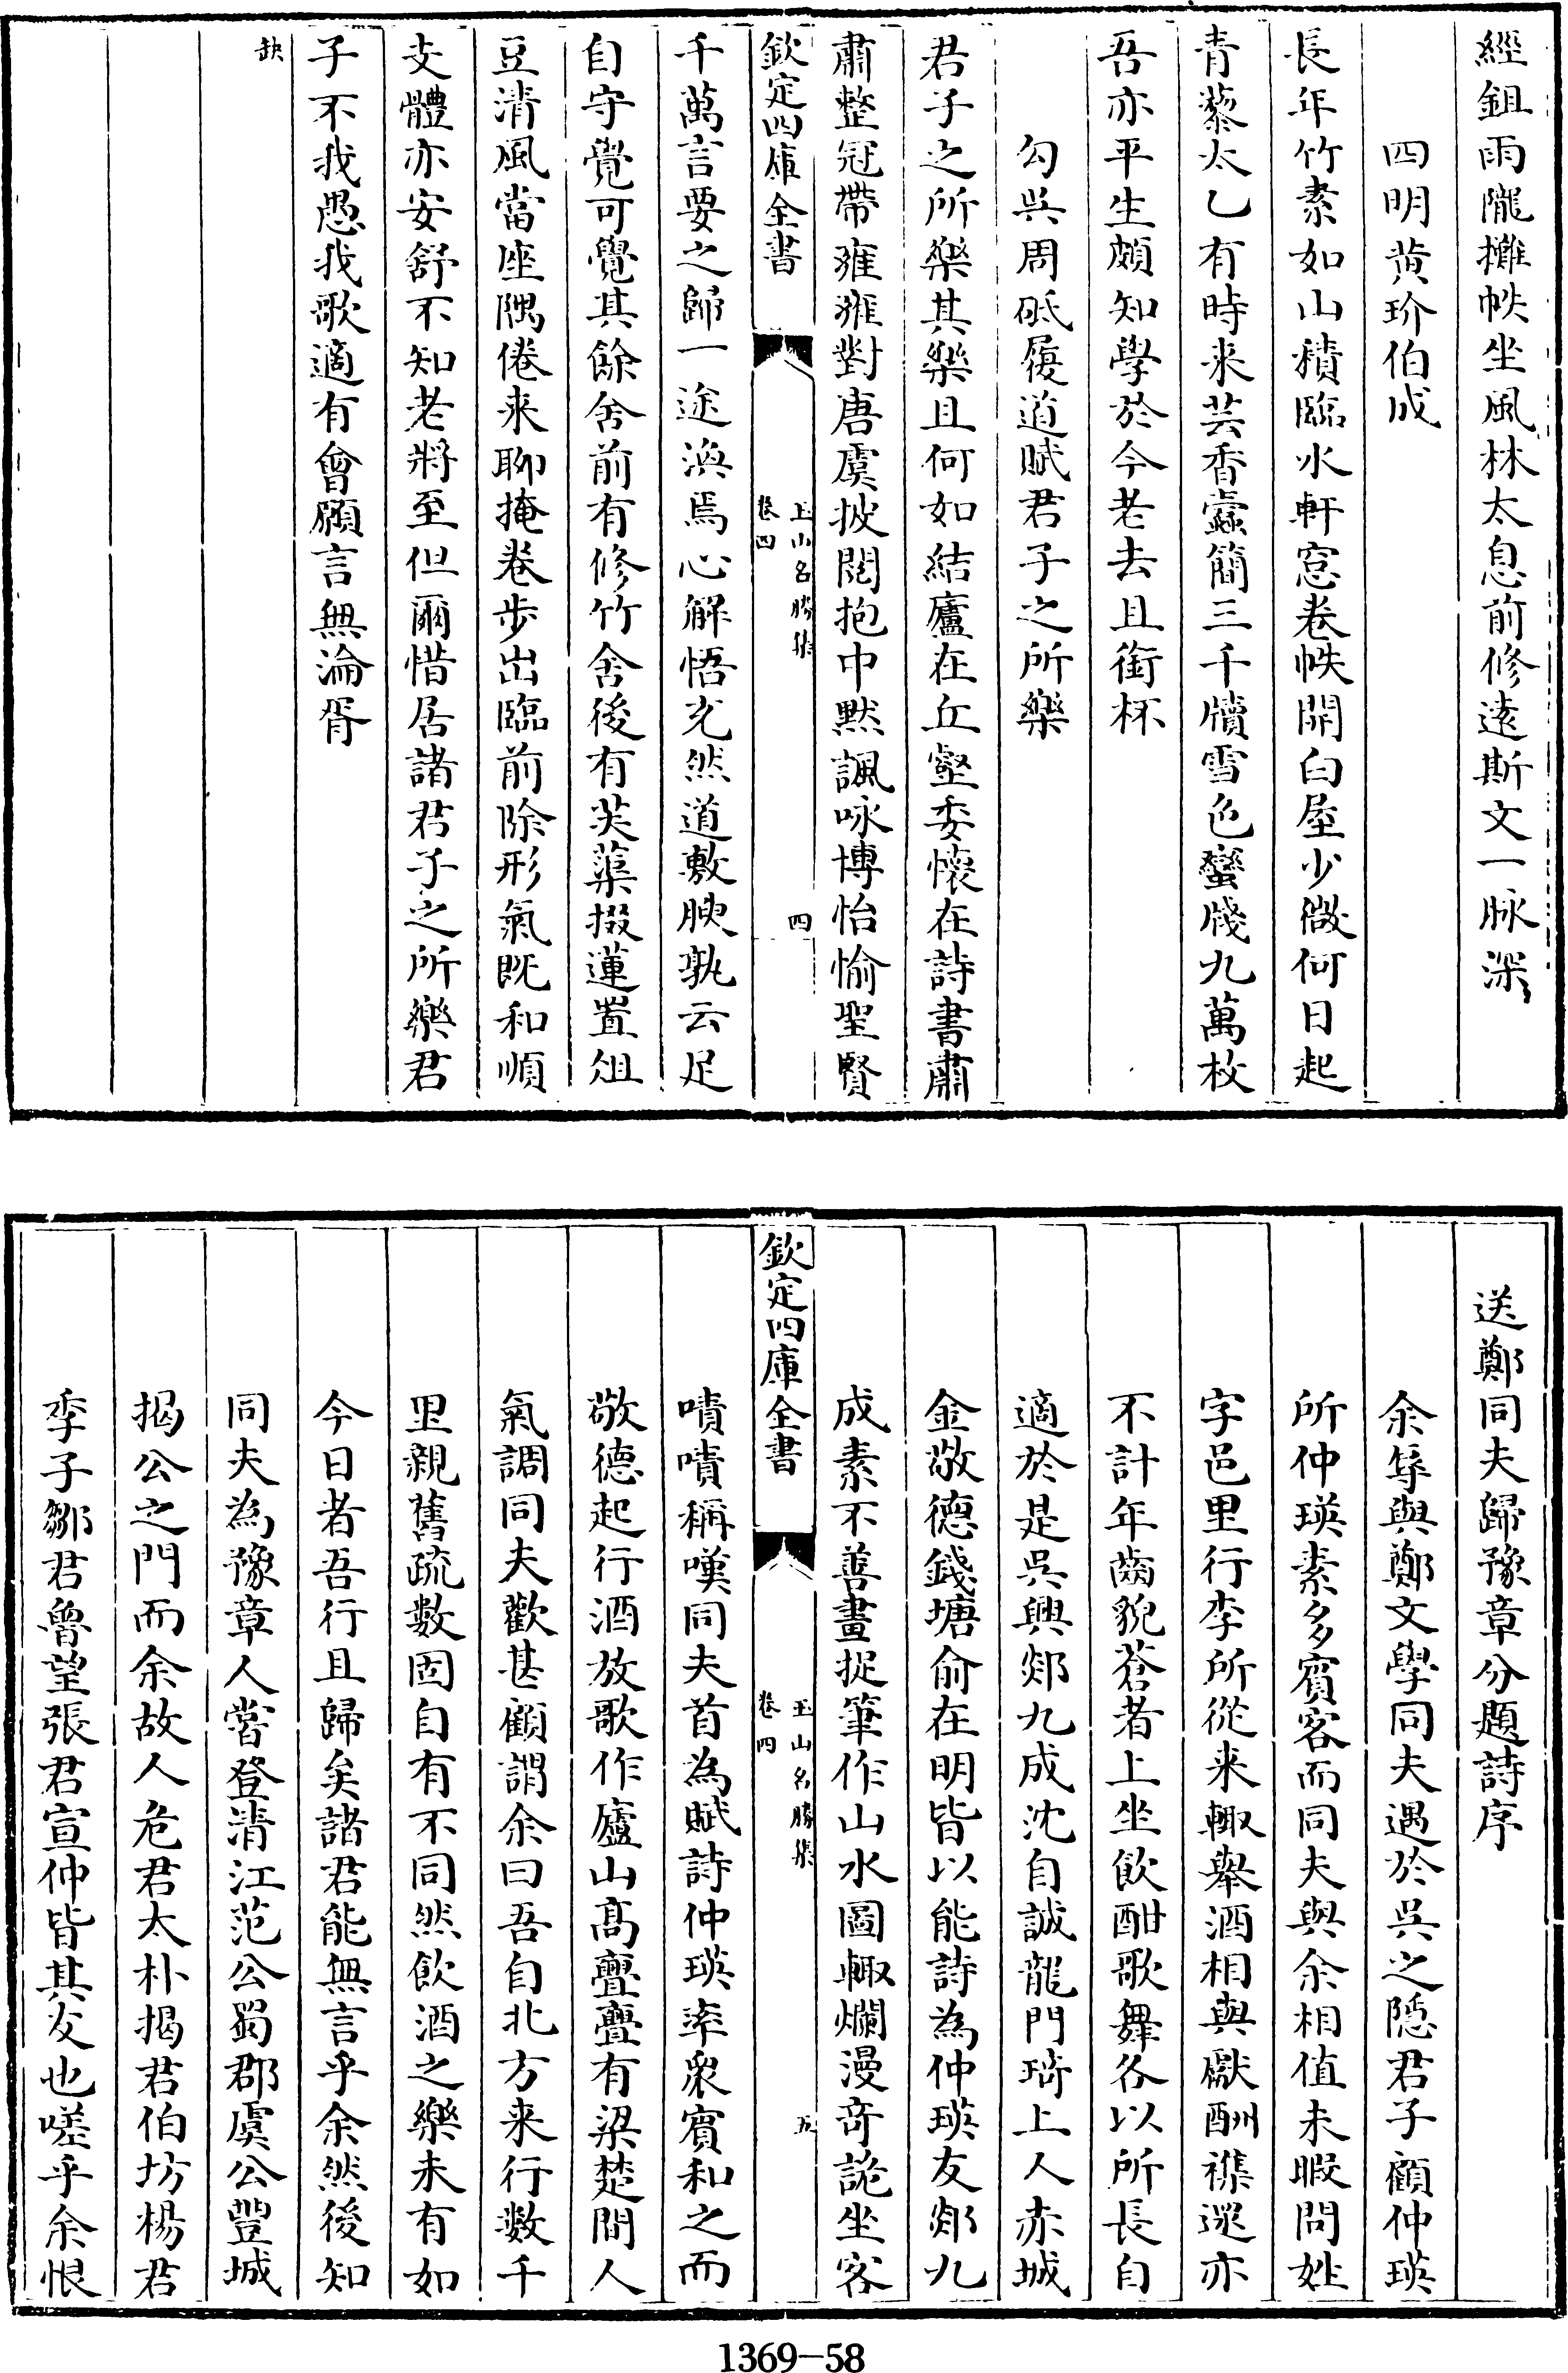 經鉏雨隴攤帙坐風林太息前修逺斯文一脉深
四明黄玠伯成
長年竹素如山積臨水軒窓卷帙開白屋少㣲何日起
青藜太乙有時来芸香蠧簡三千牘雪色蠻牋九萬枚
吾亦平生頗知學於今老去且銜杯
勾呉周砥履道賦君子之所樂
君子之所樂其樂且何如結廬在丘壑委懷在詩書肅
肅整冠帶雍雍對唐虞披閲抱中黙諷咏博怡愉聖賢
欽定四庫全書
玉山名勝集
卷四
四
千萬言要之歸一途渙焉心解悟充然道敷腴孰云足
自守覺可覺其餘舍前有修竹舍後有芙蕖掇蓮置俎
豆清風當座隅倦来聊掩卷步出臨前除形氣既和順
支體亦安舒不知老將至但爾惜居諸君子之所樂君
子不我愚我歌適有會願言無淪胥
缺
送鄭同夫歸豫章分題詩序
余辱與鄭文學同夫遇於呉之隠君子顧仲瑛
所仲瑛素多賓客而同夫與余相值未暇問姓
字邑里行李所從来輙舉酒相與獻酬襍遝亦
不計年齒貌蒼者上坐飲酣歌舞各以所長自
適於是呉興郯九成沈自誠龍門琦上人赤城
金敬德錢塘俞在明皆以能詩為仲瑛友郯九
成素不善畫捉筆作山水圖輙爛漫奇詭坐客
欽定四庫全書
玉山名勝集
卷四
五
嘖嘖稱嘆同夫首為賦詩仲瑛率衆賓和之而
敬德起行酒放歌作廬山髙亹亹有梁楚間人
氣調同夫歡甚顧謂余曰吾自北方来行數千
里親舊疏數固自有不同然飲酒之樂未有如
今日者吾行且歸矣諸君能無言乎余然後知
同夫為豫章人嘗登清江范公蜀郡虞公豐城
揭公之門而余故人危君太朴揭君伯坊楊君
季子鄒君魯望張君宣仲皆其友也嗟乎余恨
1369-58